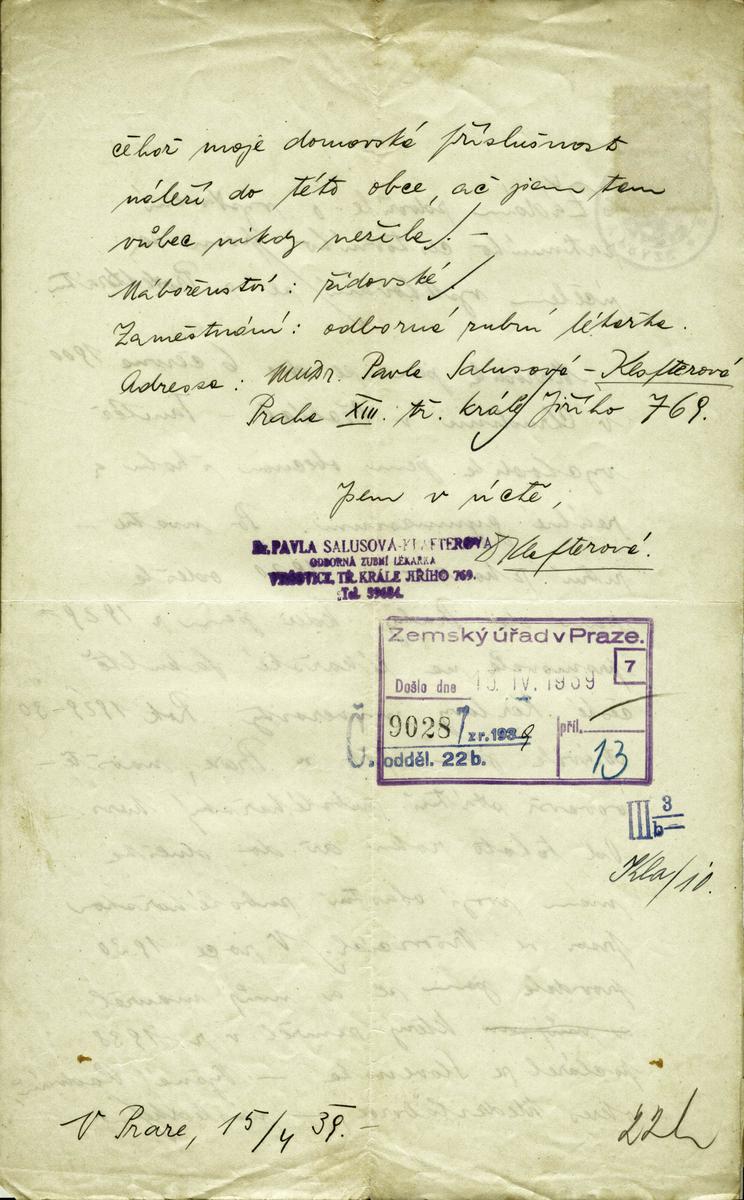 čehož moje domovská příslušnost
náleží do této obce, ač jsem tam
vůbec nikdy nežila. –
Náboženství: židovské
Zaměstnání: odborná zubní lékařka.
Adresse: MUDr. Pavla Salusová – Klafterová
Praha XIII. tř. krále Jiřího 769.
Jsem v úctě,
Dr. PAVLA SALUSOVÁ-KLAFTEROVÁ
Klafterová.
ODBORNÁ ZUBNÍ LÉKAŘKA
VRŠOVICE, TŘ. KRÁLE JIŘÍHO 769.
Tel. 59684.
Zemský úřad v Praze.
7
Došlo dne 15. IV. 1939
Č. 90287 z r. 1939
příl.
odděl. 22b.
13
III 3
b–
Kla/10.
V Praze, 15/4 39. –
22b